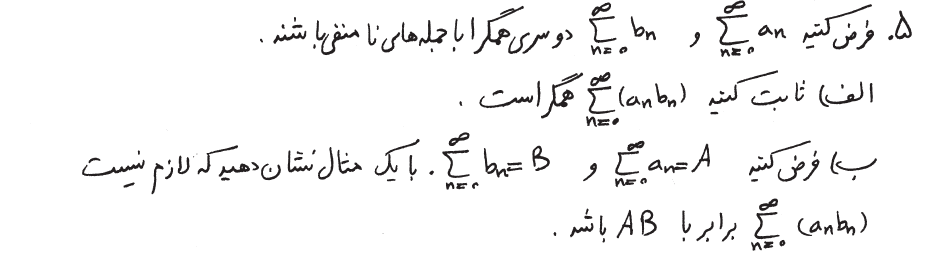 ۵. فرض کنید $\sum_{n=0}^{\infty} a_n$ و $\sum_{n=0}^{\infty} b_n$ دو سری همگرا با جمله‌های نا منفی باشند.
الف) ثابت کنید $\sum_{n=0}^{\infty} (a_n b_n)$ همگر است.
ب) فرض کنید $\sum_{n=0}^{\infty} a_n = A$ و $\sum_{n=0}^{\infty} b_n = B$. با یک مثال نشان دهید که لازم نیست
$\sum_{n=0}^{\infty} (a_n b_n)$ برابر با AB باشد.